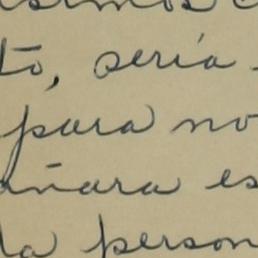 to, sería
para no
ñara es
la person